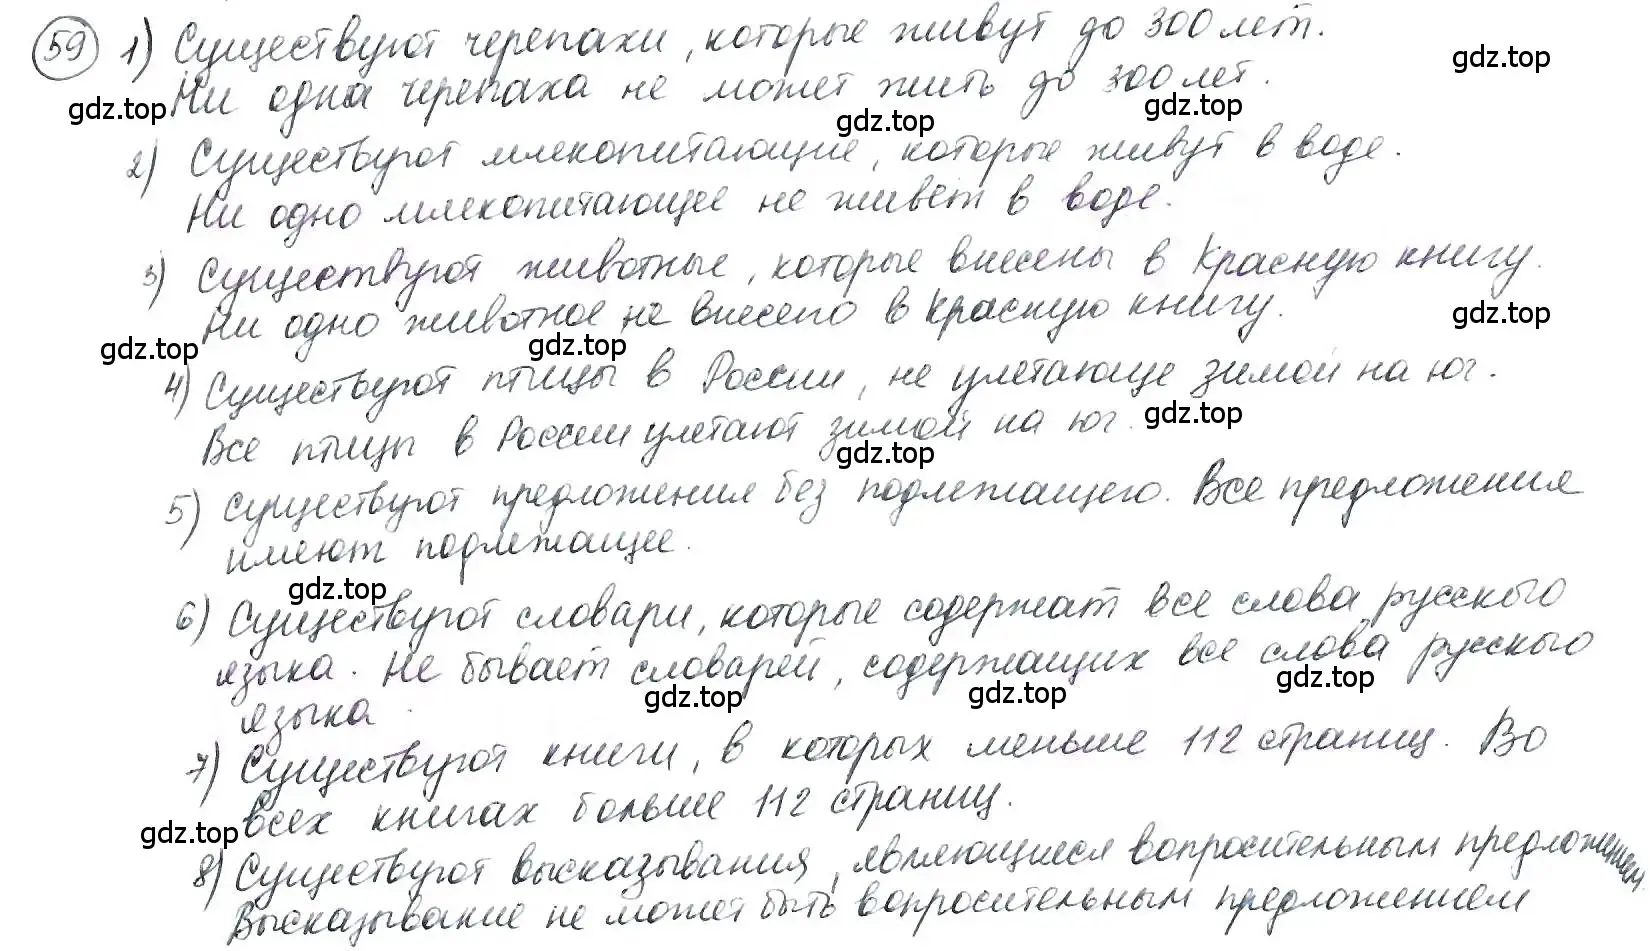 59 1) Существуют черепахи, которые живут до 300 лет.
gdz.top
Ни одна черепаха не может жить до 300 лет.
gdz.top gdz.top gdz.top
2) Существуют млекопитающие, которые живут в воде.
Ни одно млекопитающее не живёт в воде.
3) Существуют животные, которые внесены в Красную книгу.
Ни одно животное не внесено в Красную книгу.
gdz.top gdz.top gdz.top
4) Существуют птицы в России, не улетающие зимой на юг.
Все птицы в России улетают зимой на юг.
gdz.top gdz.top
5) Существуют предложения без подлежащего. Все предложения
имеют подлежащее.
gdz.top
6) Существуют словари, которые содержат все слова русского
языка. Не бывает словарей, содержащих все слова русского
gdz.top gdz.top gdz.top
языка.
7) Существуют книги, в которых меньше 112 страниц. Во
всех книгах больше 112 страниц.
gdz.top
8) Существуют высказывания, являющиеся вопросительным предложением.
Высказывание не может быть вопросительным предложением